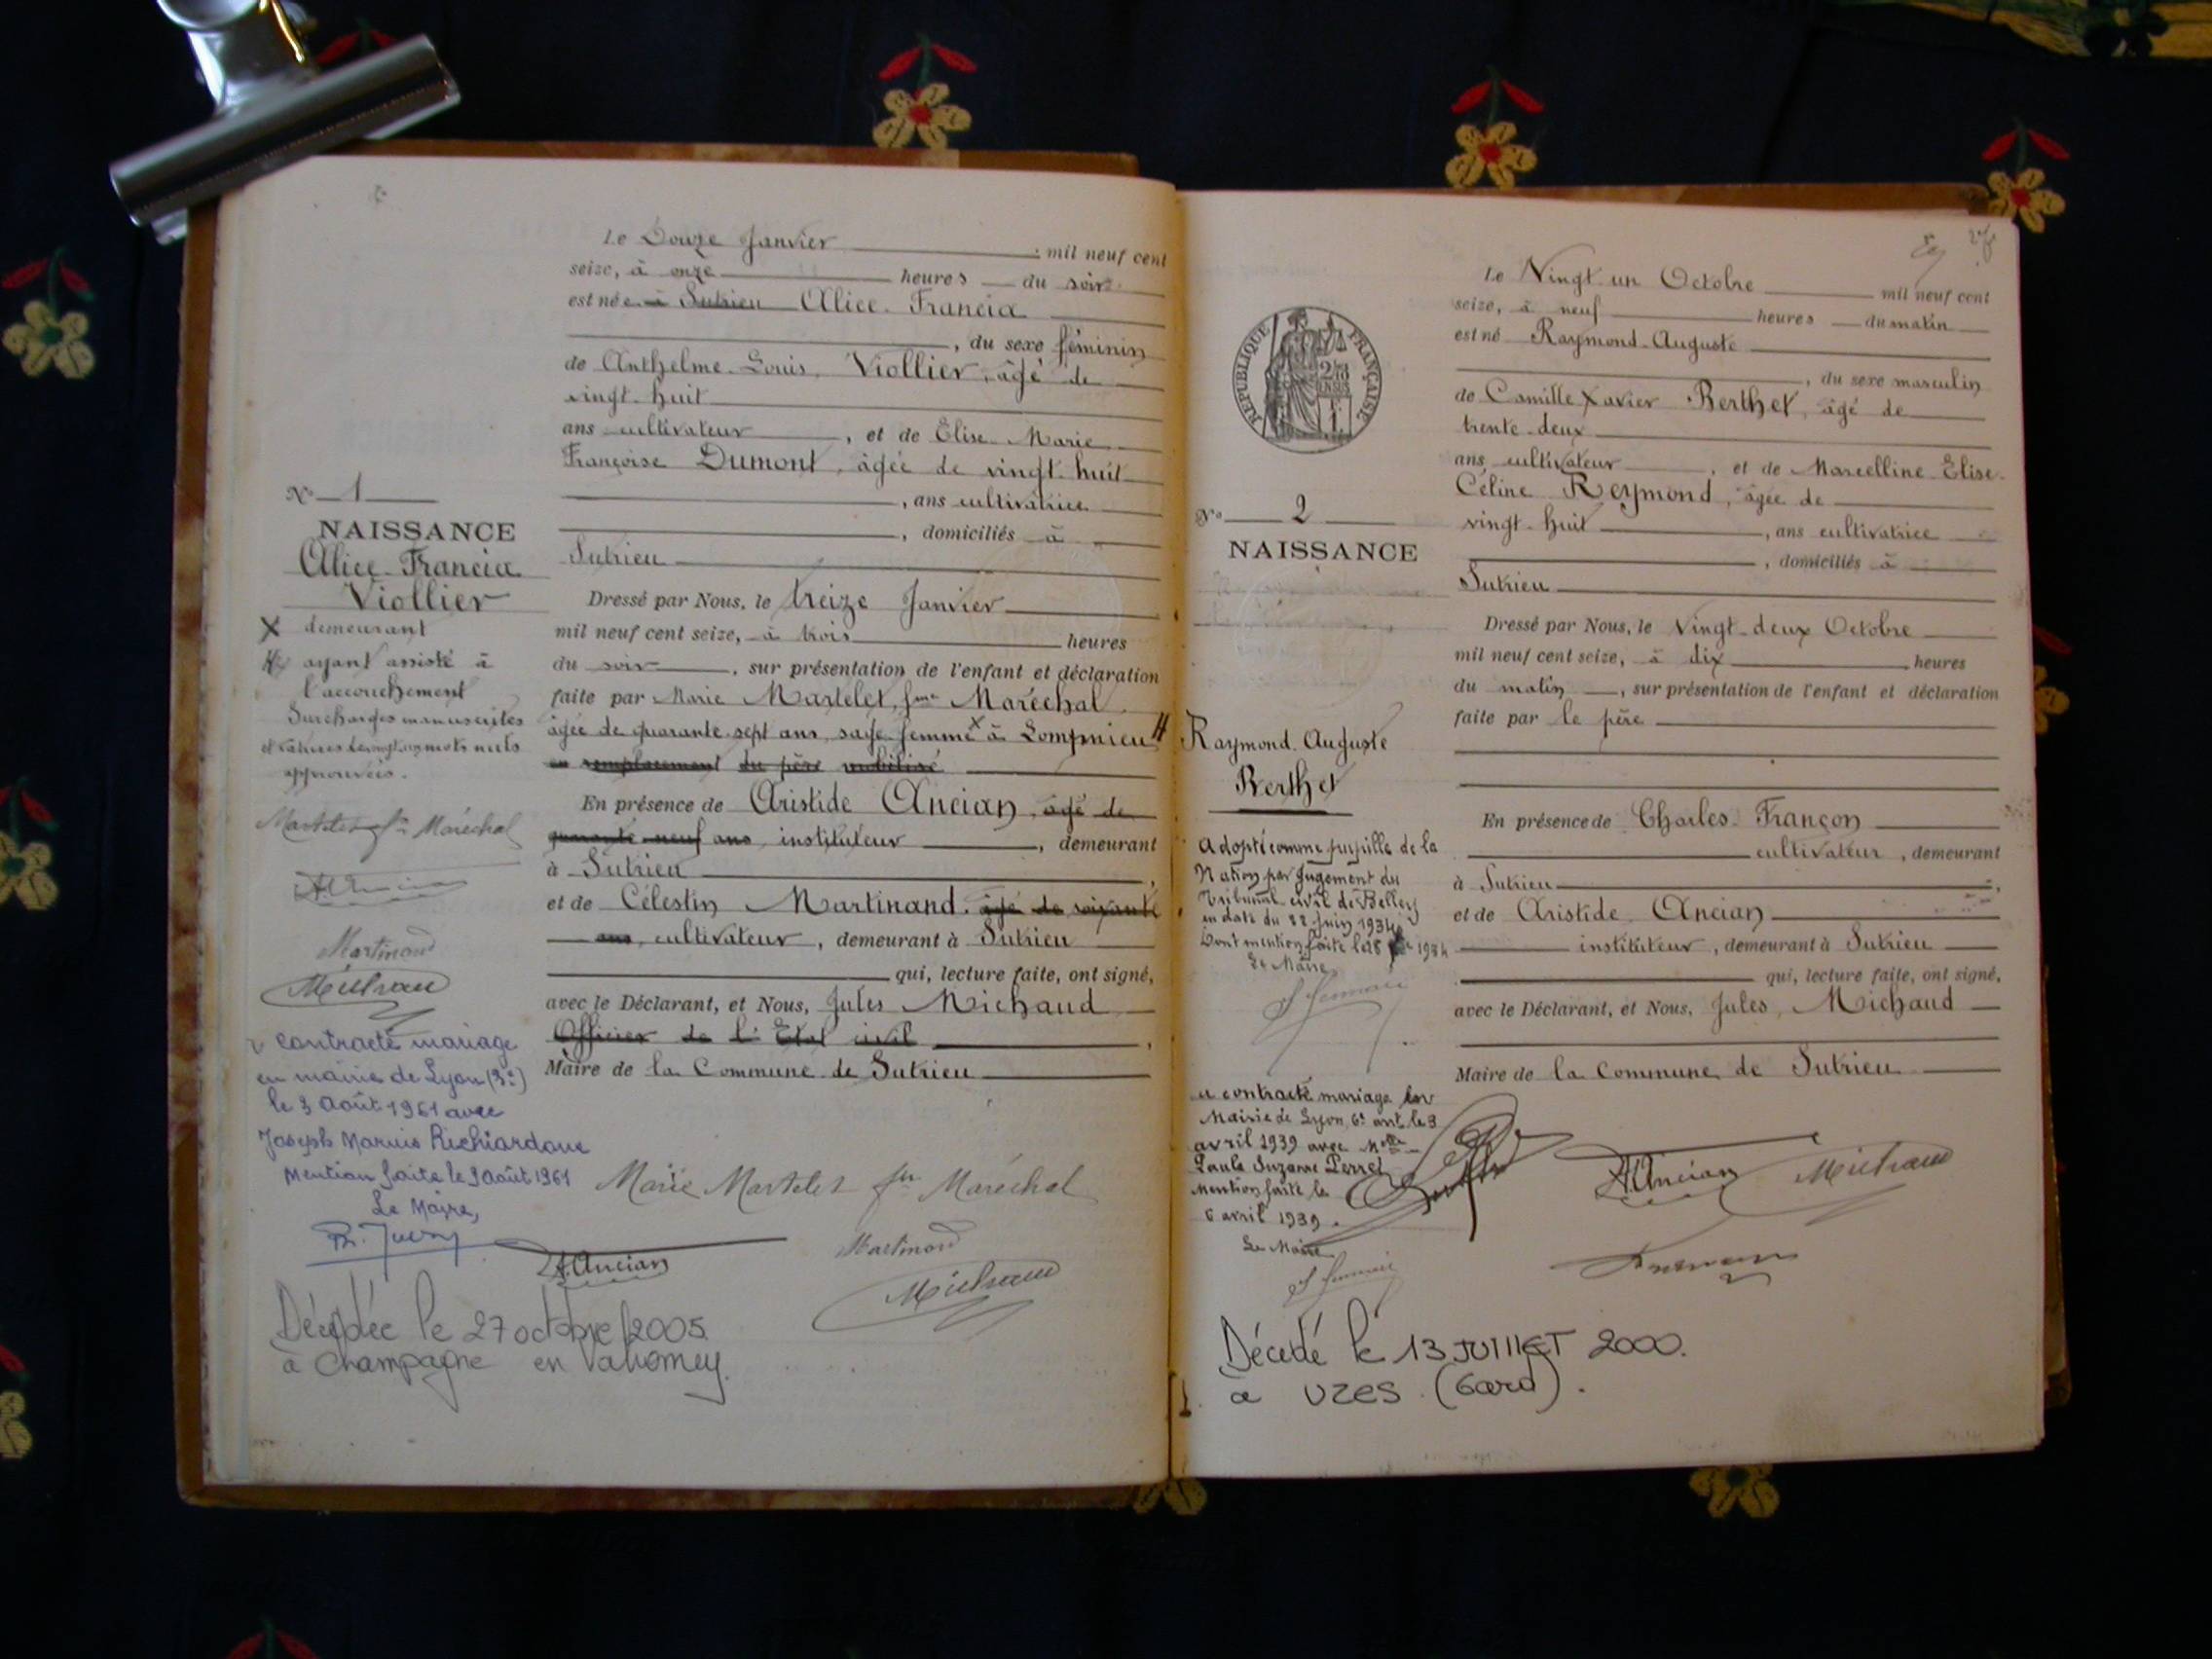 Le Douze Janvier mil neuf cent
seize, à onze heures du soir
est née à Sutrieu Alice Francia
, du sexe féminin
de Anthelme Louis Viollier, âgé de
vingt huit
ans cultivateur, et de Elise Marie
Françoise Dumont, âgée de vingt huit
, ans cultivatrice
, domiciliés à
Sutrieu
Dressé par Nous, le treize Janvier
mil neuf cent seize, à trois heures
du soir, sur présentation de l'enfant et déclaration
faite par Marie Martelet, fme Maréchal
âgée de quarante sept ans, sage femme X à Lompnieu #
en remplacement du père mobilisé
En présence de Aristide Ancian, âgé de
quarante neuf ans, instituteur, demeurant
à Sutrieu,
et de Célestin Martinand, âgé de soixante
ans, cultivateur, demeurant à Sutrieu
qui, lecture faite, ont signé,
avec le Déclarant, et Nous, Jules Michaud
Officier de l'Etat civil,
Maire de la Commune de Sutrieu
N° 1
NAISSANCE
Alice Francia
Viollier
X demeurant
# ayant assisté à
l'accouchement
Surcharges manuscrites
et mots nuls
approuvés.
Martelet fme Maréchal
A. Ancian
Martinand
Michaud
a contracté mariage
en mairie de Lyon (3e)
le 3 Août 1961 avec
Joseph Marius Richiardone
Mention faite le 9 Août 1961
Le Maire,
Marie Martelet fme Maréchal
Martinand
A. Ancian
Michaud
Décédée le 27 octobre 2005
à Champagne en Valromey.
Le Vingt un Octobre mil neuf cent
seize, à neuf heures du matin
est né Raymond Auguste
, du sexe masculin
de Camille Xavier Berthet, âgé de
trente deux
ans cultivateur, et de Marcelline Elise
Céline Reymond, âgée de
vingt huit, ans cultivatrice
, domiciliés à
Sutrieu
Dressé par Nous, le Vingt deux Octobre
mil neuf cent seize, à dix heures
du matin, sur présentation de l'enfant et déclaration
faite par le père
En présence de Charles Françon
cultivateur, demeurant
à Sutrieu,
et de Aristide Ancian
instituteur, demeurant à Sutrieu
qui, lecture faite, ont signé,
avec le Déclarant, et Nous, Jules Michaud
Maire de la Commune de Sutrieu
REPUBLIQUE FRANÇAISE
N° 2
NAISSANCE
Raymond Auguste
Berthet
Adopté comme pupille de la
Nation par Jugement du
Tribunal civil de Belley
en date du 22 Juin 1934
Dont mention faite le 1934
Le Maire
a contracté mariage en
Mairie de Lyon 6e arrt le 3
avril 1939 avec Melle
Paule Suzanne Perret
Mention faite le
6 avril 1939.
Le Maire
A. Ancian
Michaud
Décédé le 13 JUILLET 2000.
à UZES (Gard).